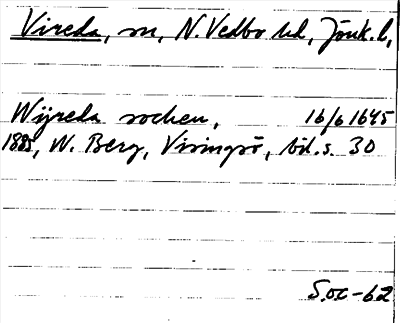 Vireda, sn, N. Vedbo hd, Jönk. l,
Wijreda sochen, 16/6 1645
1885, W. Berg, Visingsö, bil. s. 30
S.oc-62